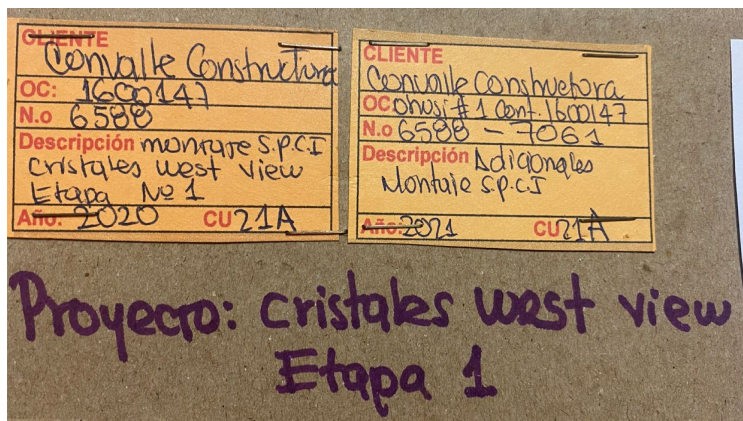 CLIENTE
Convalle Constructora
OC: 1600147
N.o 6588
Descripción montaje S.P.C.I
cristales west view
Etapa Nº 1
Año: 2020 CU 21A
CLIENTE
Convalle Constructora
OC otrosi # 1 Cont. 1600147
N.o 6588 - 7061
Descripción Adicionales
Montaje S.P.C.I
Año: 2021 CU 21A
Proyecto: cristales west view
Etapa 1